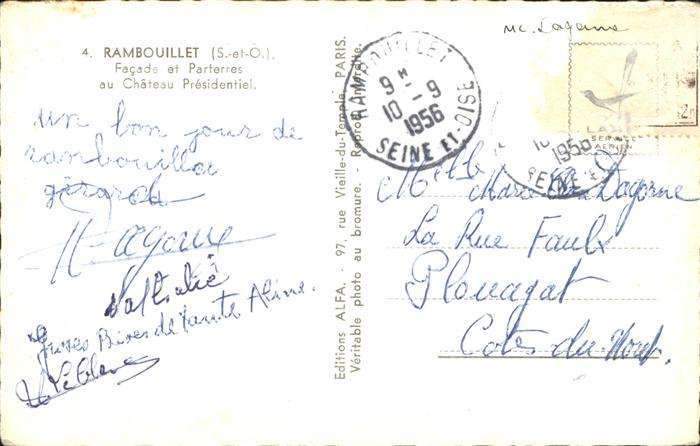 4. RAMBOUILLET (S.-et-O.).
Façade et Parterres
au Château Présidentiel.
un bon jour de
rambouillet
gérard
Nathalie
Bises de tante Aline.
Leblanc
Editions ALFA. - 97, rue Vieille-du-Temple, PARIS.
Véritable photo au bromure. - Reprod. interdite.
RAMBOUILLET
9 H
10 - 9
1956
SEINE ET OISE
10
1956
SEINE ET
Mc. Dagorne
Melle Marie Dagorne
La Rue Faulx
Plouagat
Cotes-du-Nord.